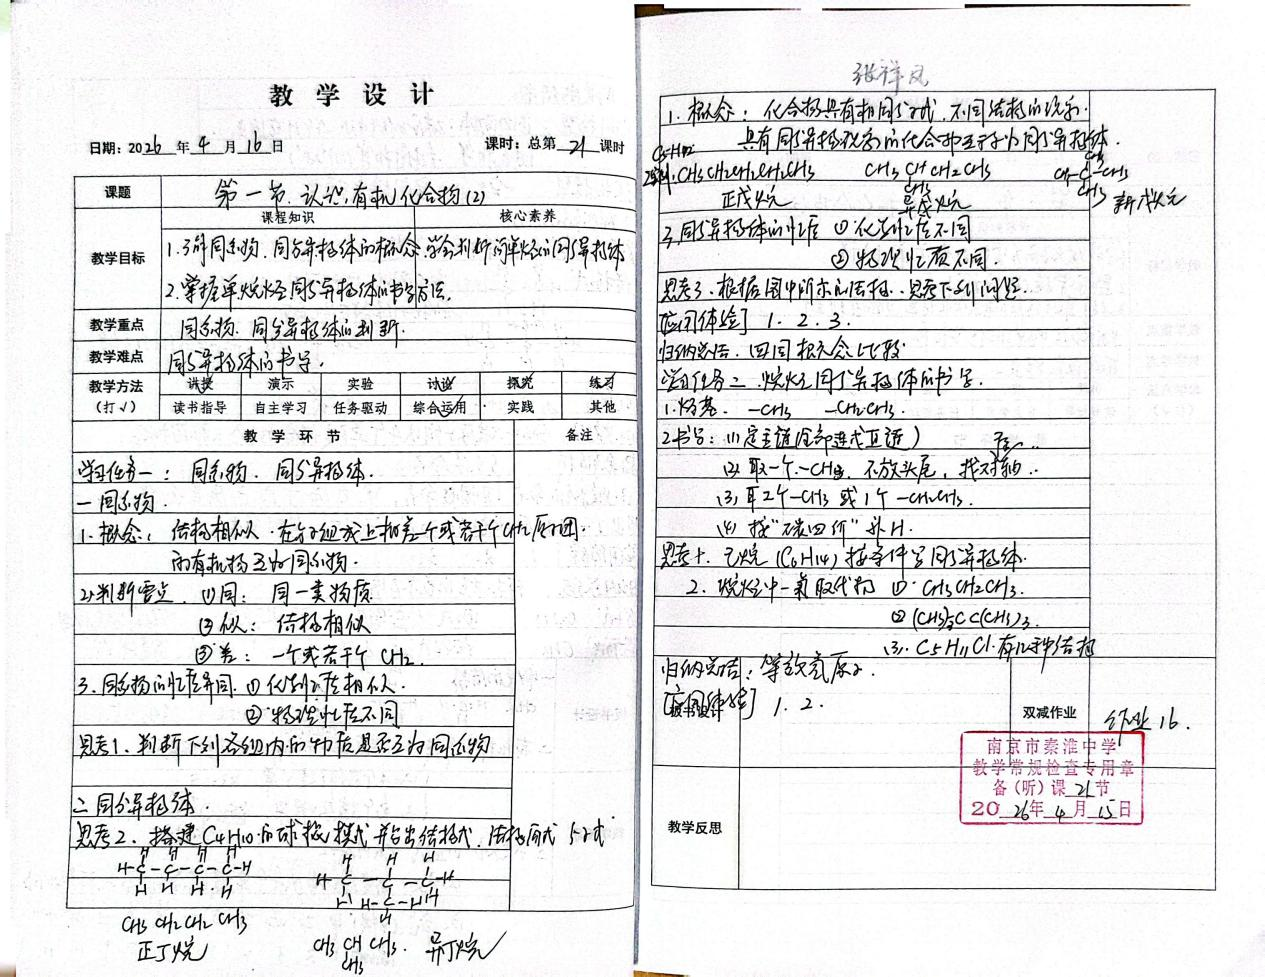 教学设计
日期：2026年4月16日 课时：总第21课时
课题 第一节 认识有机化合物(2)
课程知识 核心素养
教学目标
1.了解同系物、同分异构体的概念,学会判断简单烃的同分异构体
2.掌握单烷烃同分异构体的书写方法.
教学重点 同系物、同分异构体的判断.
教学难点 同分异构体的书写.
教学方法（打√） 讲授 演示 实验 讨论 探究 练习
读书指导 自主学习 任务驱动 综合运用 实践 其他
教学环节 备注
学习任务一：同系物、同分异构体.
一 同系物.
1.概念：结构相似.在分子组成上相差一个或若干个CH2原子团.
的有机物互为同系物.
2.判断要点 ①同：同一类物质
②似：结构相似
③差：一个或若干个CH2.
3.同系物的性质异同 ①化学性质相似.
②物理性质不同
思考1.判断下列各组内的物质是否互为同系物
二 同分异构体.
思考2.搭建C4H10的球棍模式并写出结构式、结构简式 分子式
H H H H
H-C-C-C-C-H
H H H H
CH3 CH2 CH2 CH3
正丁烷
H H H
H-C-C-C-H
H H-C-H H
H
CH3 CH CH3.
CH3
异丁烷
张祥凤
1.概念：化合物具有相同分子式,不同结构的现象.
具有同分异构现象的化合物互称为同分异构体
C5H12
2.实例:CH3CH2CH2CH2CH3 CH3 CH CH2 CH3
CH3
CH3
CH3-C-CH3
CH3
正戊烷 异戊烷 新戊烷
3.同分异构体的性质 ①化学性质不同
②物理性质不同.
思考3.根据图中所示的结构.思考下列问题.
[应用体验] 1.2.3.
归纳总结.四同概念比较
学习任务二 烷烃同分异构体的书写.
1.烃基. -CH3 -CH2CH3.
2.书写：(1)定主链(全部连成直链)
(2)取一个-CH3,不放头尾,找对称..
(3)取2个-CH3或1个-CH2CH3.
(4)按“碳四价”补H.
思考1.己烷(C6H14)按条件写同分异构体.
2.烷烃中一氯取代物 ①CH3CH2CH3.
②(CH3)3CC(CH3)3.
(3).C5H11Cl有几种结构
归纳总结：等效氢原子.
[应用体验] 1.2.
板书设计
双减作业 作业16.
南京市秦淮中学
教学常规检查专用章
备(听)课21节
2026年4月15日
教学反思